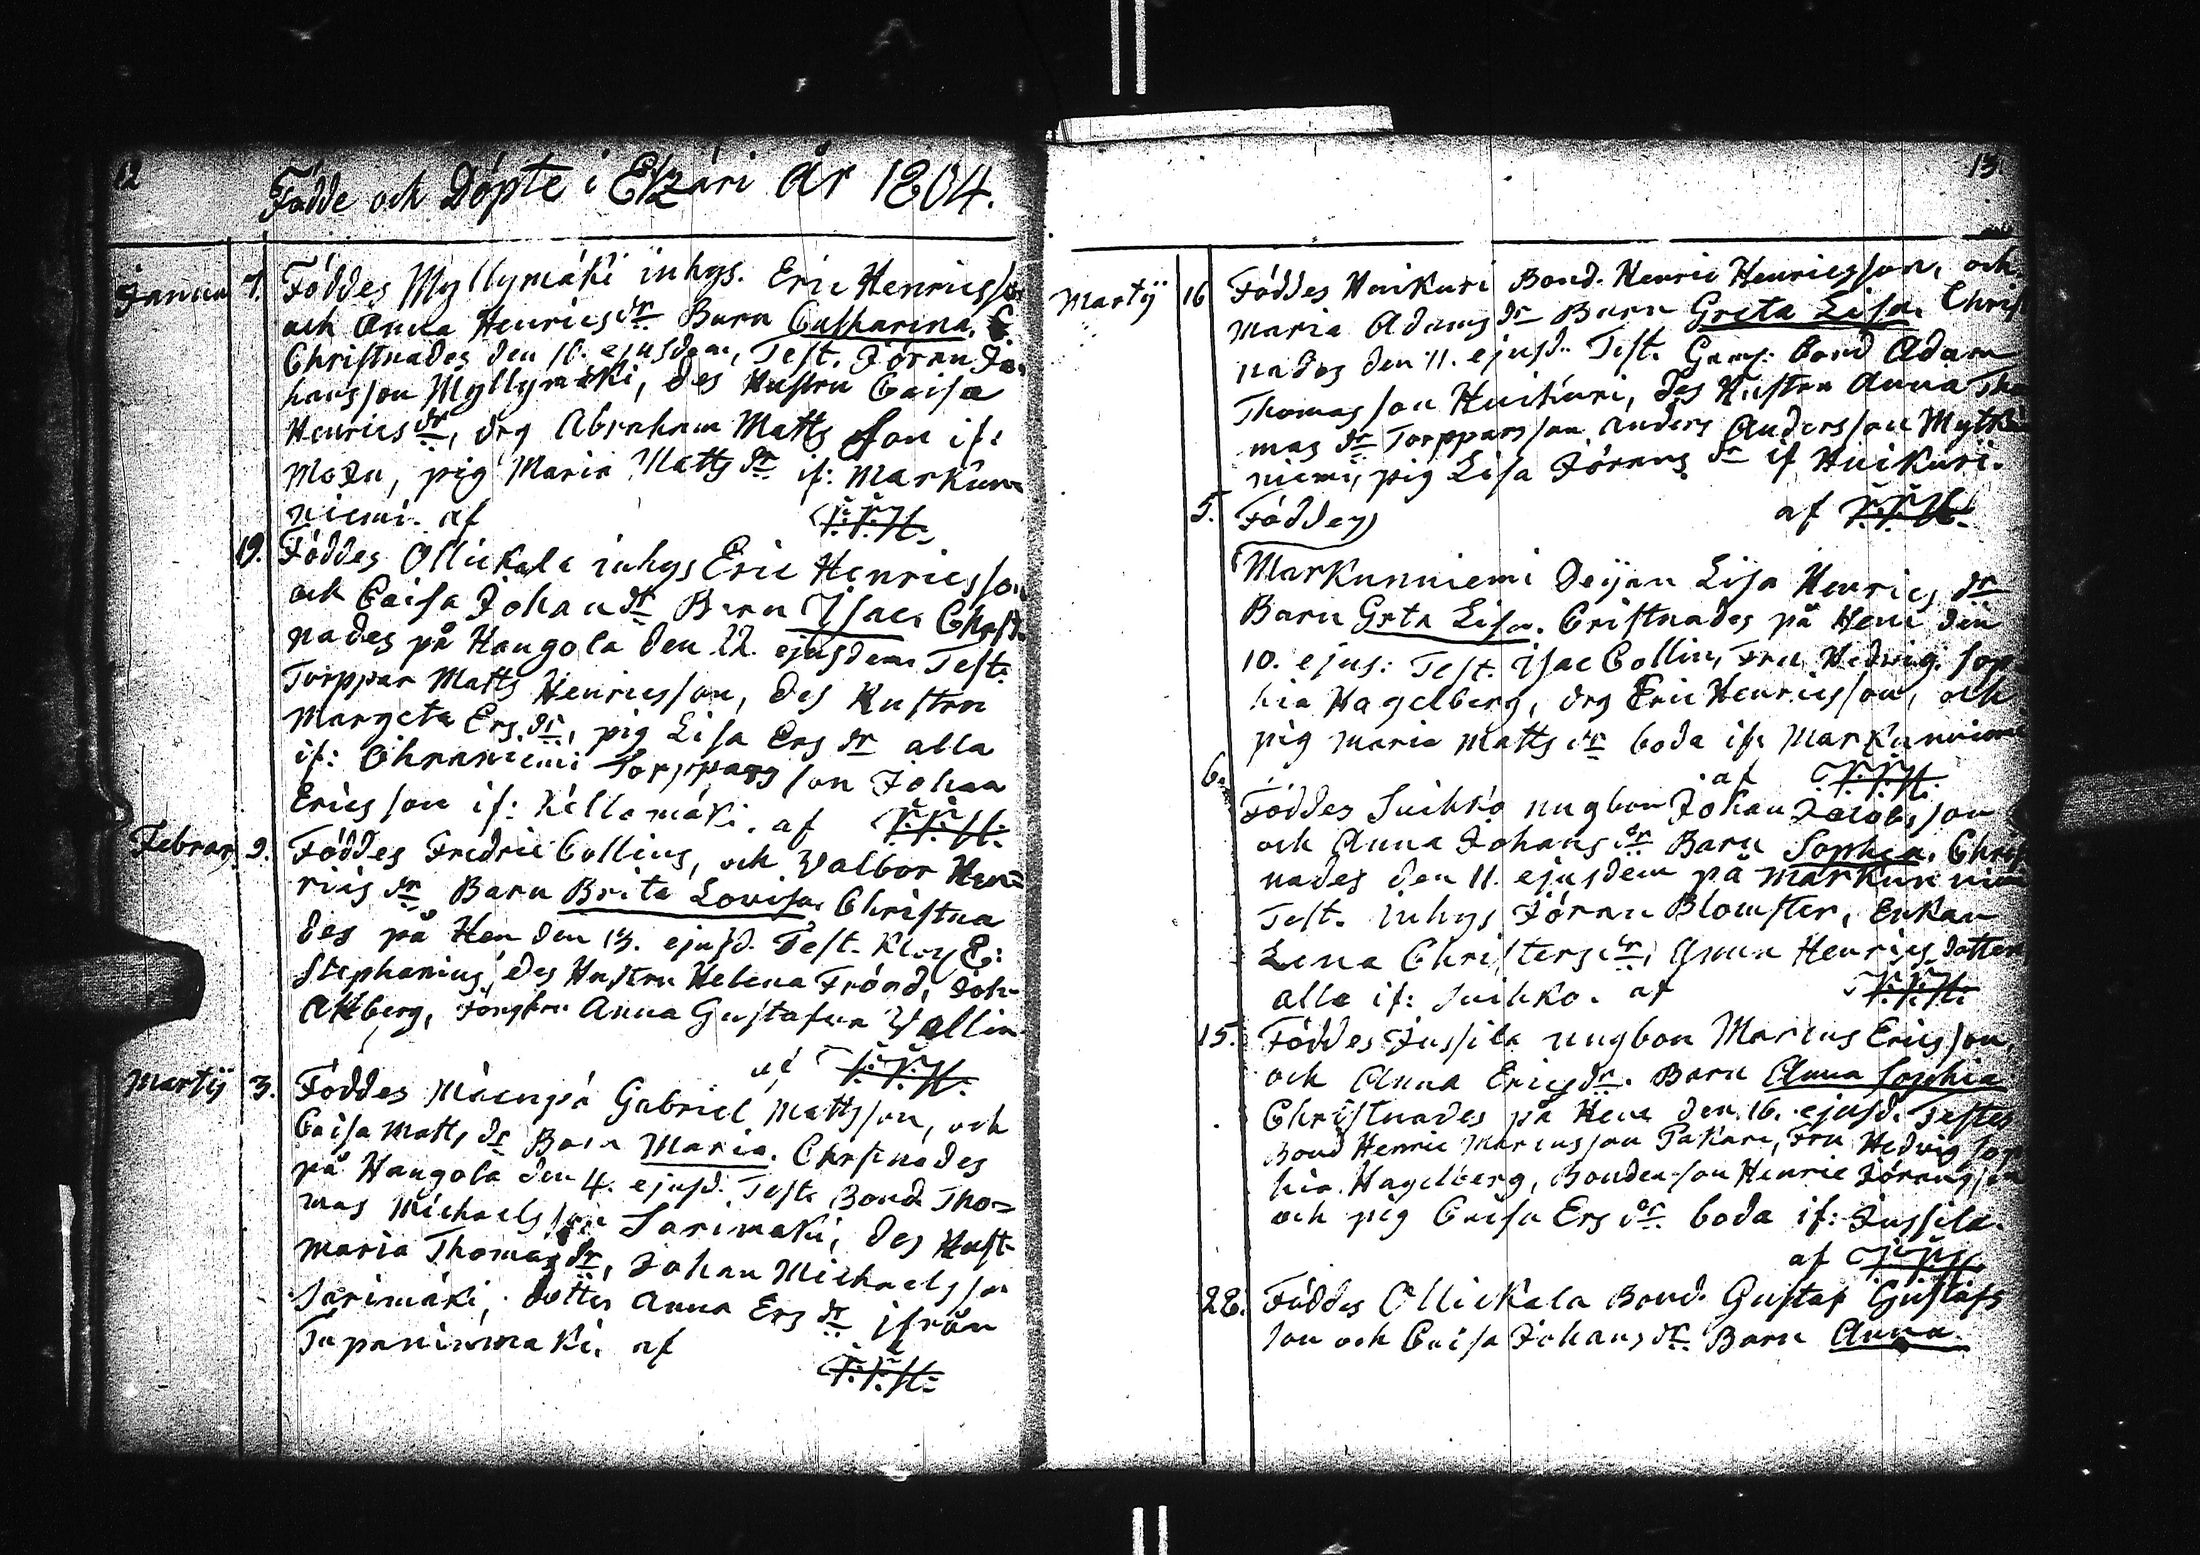 12
Födde och Döpte i Etzäri år 1804.
Janua 7. Föddes Myllymäki inhys. Eric Henricsson
och Anna Henricsdr Barn Catharina.
Christnades den 10. ejusdem, Test. Jöran Jo-
hansson Myllymäki, des Hustru Caisa
Henricsdr, drg Abraham Matts son if:
pig Maria Mattsdr if: Markun-
niemi. af V.V.H.
19. Föddes Ollickala inhys Eric Henricsson
och Caisa Johansdr Barn Isac. Christ-
nades på Hangola den 22. ejusdem Test.
Torppar Matts Henricsson, des Hustru
Margeta Ersdr, pig Lisa Ersdr alla
if: Torppars son Johan
Ericsson if: Killamäki. af V.V.H.
Februar. 9. Föddes Fredric Collins, och Valbor Hen-
ricsdr Barn Brita Lovisa. Christna
des på Hen den 13. ejusd. Test. E:
Stephanius, des Hustru Helena Frönd, Joh.
Akberg, Jongfru Anna Gustafva Wallin
af V.V.H.
Martij 3. Föddes Mäenpä Gabriel Mattsson, och
Caisa Mattsdr Barn Maria. Chrsinades
på Hangola den 4. ejusd. Test. Bond Tho-
mas Michaelsson Sarimaki, des Hust-
Maria Thomasdr, Johan Michaelsson
Sarimäki, dotter Anna Ersdr ifrån
Tapaninmaki. af
V.V.H.
13
Martij 16 Föddes Huikuri Bond. Henric Henricsson, och
Maria Adamsdr Barn Greta Lisa. Christ
nades den 11. ejusd. Test. Gams. Bond Adam
Thomasson Huikuri, des Hustru Anna Tho
mas dr Torppars son Anders Andersson Mytke
niemi, pig Lisa Jöransdr if Huikuri.
af V.V.H.
5. Föddes
Markunniemi Deijan Lisa Henricsdr
Barn Grta Lisa. Cristnades på Hene den
10. ejus: Test. Isac Collin, Fru Hedvig Sop
hia Hagelberg, drg Eric Henricsson, och
pig Maria Mattsdr boda if: Markunniemi
af V.V.H.
6. Föddes Suihko nugbon Johan Jacobsson
och Anna Johansdr Barn Sophia. Christ
nades den 11. ejusdem på Markunniem
Test. Inhys Jöran Blomster, Enkan
Lena Christersdr, Anna Henrics dotter
alla if: Suihko. af V.V.H.
15. Föddes Jussila ungbon Marcus Ericsson,
och Anna Ericsdr. Barn Anna Sophia
Christnades på Hene den 16. ejusd. Testes
Bond Henric Marcusson Pakari, Fru Hedvig Sop
hia Hagelberg, Bonden son Henric Jöransson
och pig Caisa Ersdr. boda if: Jussila.
af V.V.H.
28. Föddes Ollickala Bond. Gustaf Gustafs
son och Caisa Johansdr. Barn Anna